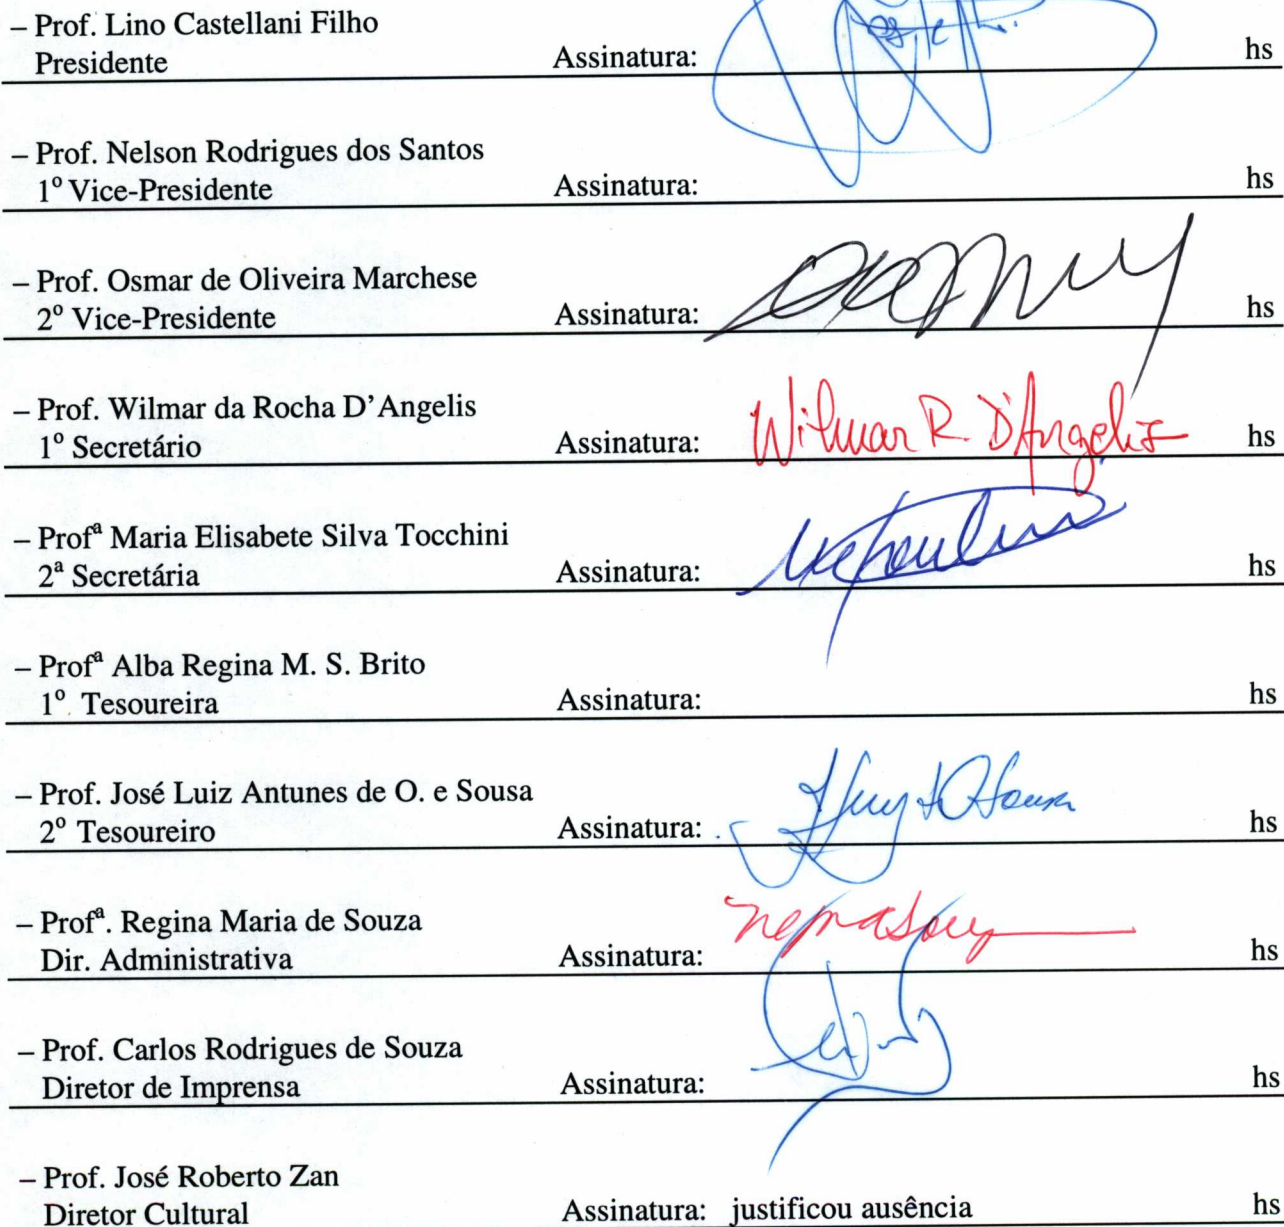 – Prof. Lino Castellani Filho
Presidente Assinatura: hs
– Prof. Nelson Rodrigues dos Santos
1º Vice-Presidente Assinatura: hs
– Prof. Osmar de Oliveira Marchese
2º Vice-Presidente Assinatura: hs
– Prof. Wilmar da Rocha D'Angelis
1º Secretário Assinatura: Wilmar R. D'Angelis hs
– Profª Maria Elisabete Silva Tocchini
2ª Secretária Assinatura: hs
– Profª Alba Regina M. S. Brito
1º Tesoureira Assinatura: hs
– Prof. José Luiz Antunes de O. e Sousa
2º Tesoureiro Assinatura: hs
– Profª. Regina Maria de Souza
Dir. Administrativa Assinatura: hs
– Prof. Carlos Rodrigues de Souza
Diretor de Imprensa Assinatura: hs
– Prof. José Roberto Zan
Diretor Cultural Assinatura: justificou ausência hs